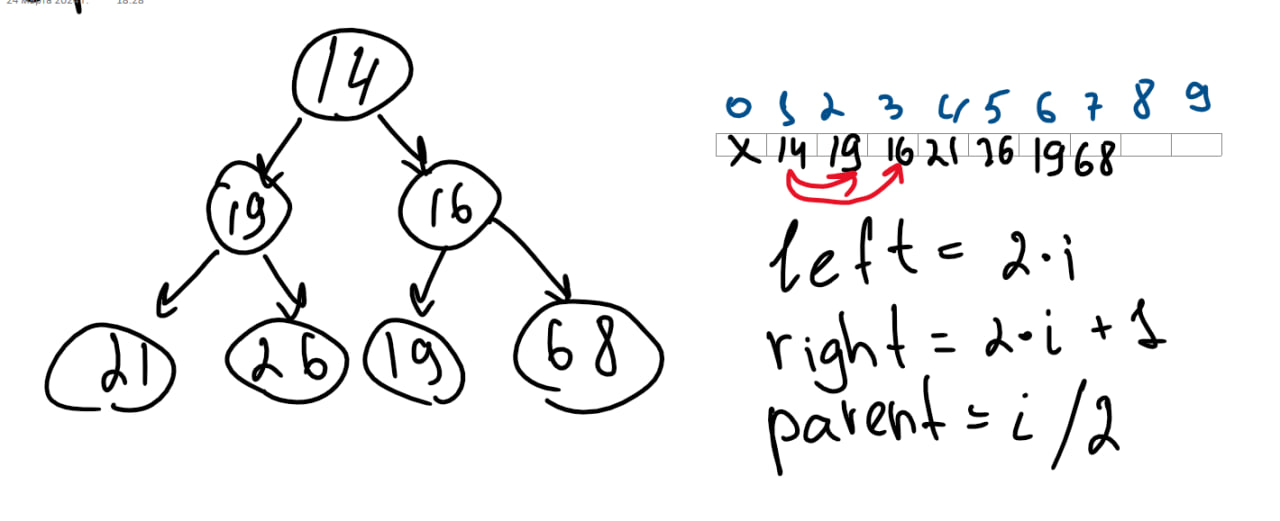 18:28
14
19 16
21 26 19 68
0 1 2 3 4 5 6 7 8 9
X 14 19 16 21 26 19 68
left = 2·i
right = 2·i + 1
parent = i/2